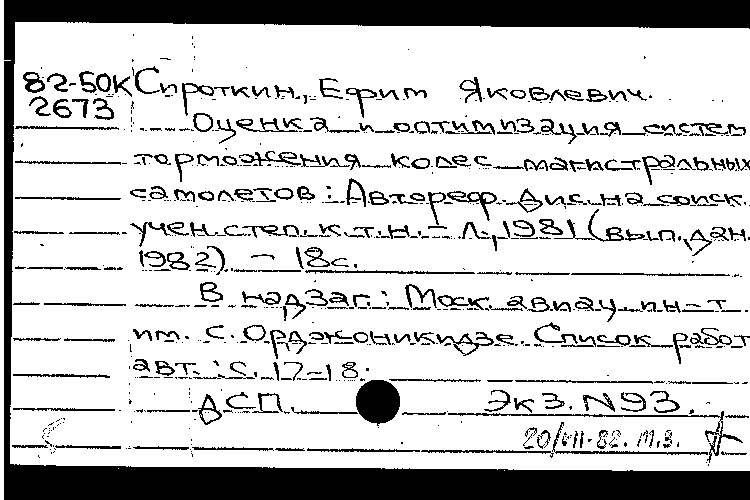 82-50К Сироткин, Ефим Яковлевич.
2673 Оценка и оптимизация систем
торможения колес магистральных
самолетов: Автореф. дис. на соиск.
учен. степ. к.т.н. - Л., 1981 (вып. дан.
1982). - 18с.
В надзаг.: Моск. авиац. ин-т
им. С. Орджоникидзе. Список работ
авт.: с. 17-18.
ДСП. Экз. N93.
20/VII-82. М.З.